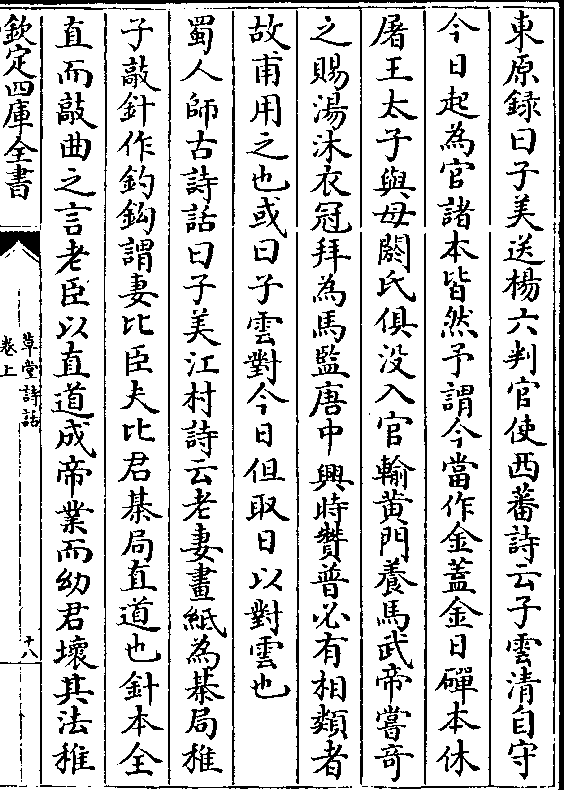 東原錄曰子美送楊六判官使西蕃詩云子雲清自守
今日起為官諸本皆然予謂今當作金蓋金日磾本休
屠王太子與母閼氏俱没入官輸黃門養馬武帝嘗奇
之賜湯沐衣冠拜為馬監唐中興時贊普必有相類者
故甫用之也或曰子雲對今日但取日以對雲也
蜀人師古詩話曰子美江村詩云老妻畫紙為棊局稚
子敲針作釣鈎謂妻比臣夫比君棊局直道也針本全
直而敲曲之言老臣以直道成帝業而幼君壞其法稚
欽定四庫全書
草堂詩話
卷上
十八